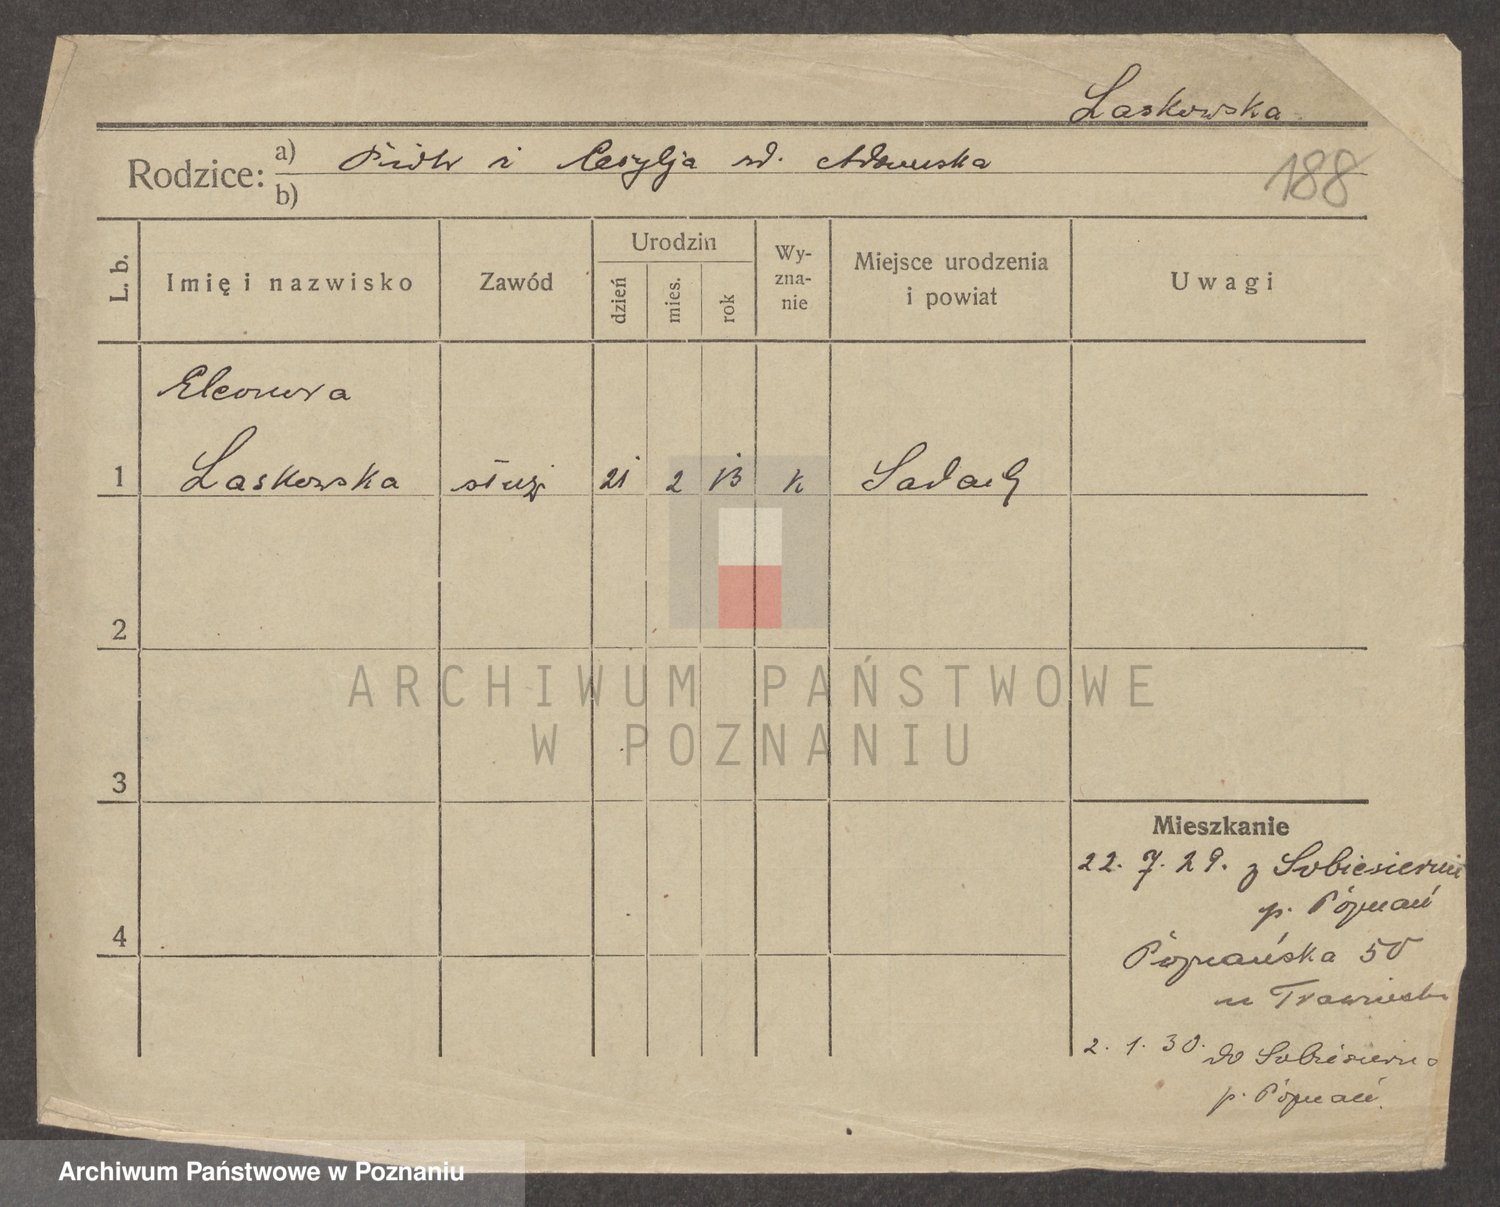 Laskowska
Rodzice: a) Piotr i Cecylja zd. Adamska
b)
188
L. b.
Imię i nazwisko
Zawód
Urodzin
dzień
mies.
rok
Wy-
zna-
nie
Miejsce urodzenia
i powiat
Uwagi
Eleonora
1 Laskowska służ 21 2 13 k Sady
2
3
4
Mieszkanie
22. 7. 29. z Sobiesiernie
p. Poznań
Poznańska 50
u
2. 1. 30. do Sobiesiernie
p. Poznań
ARCHIWUM PAŃSTWOWE
W POZNANIU
Archiwum Państwowe w Poznaniu